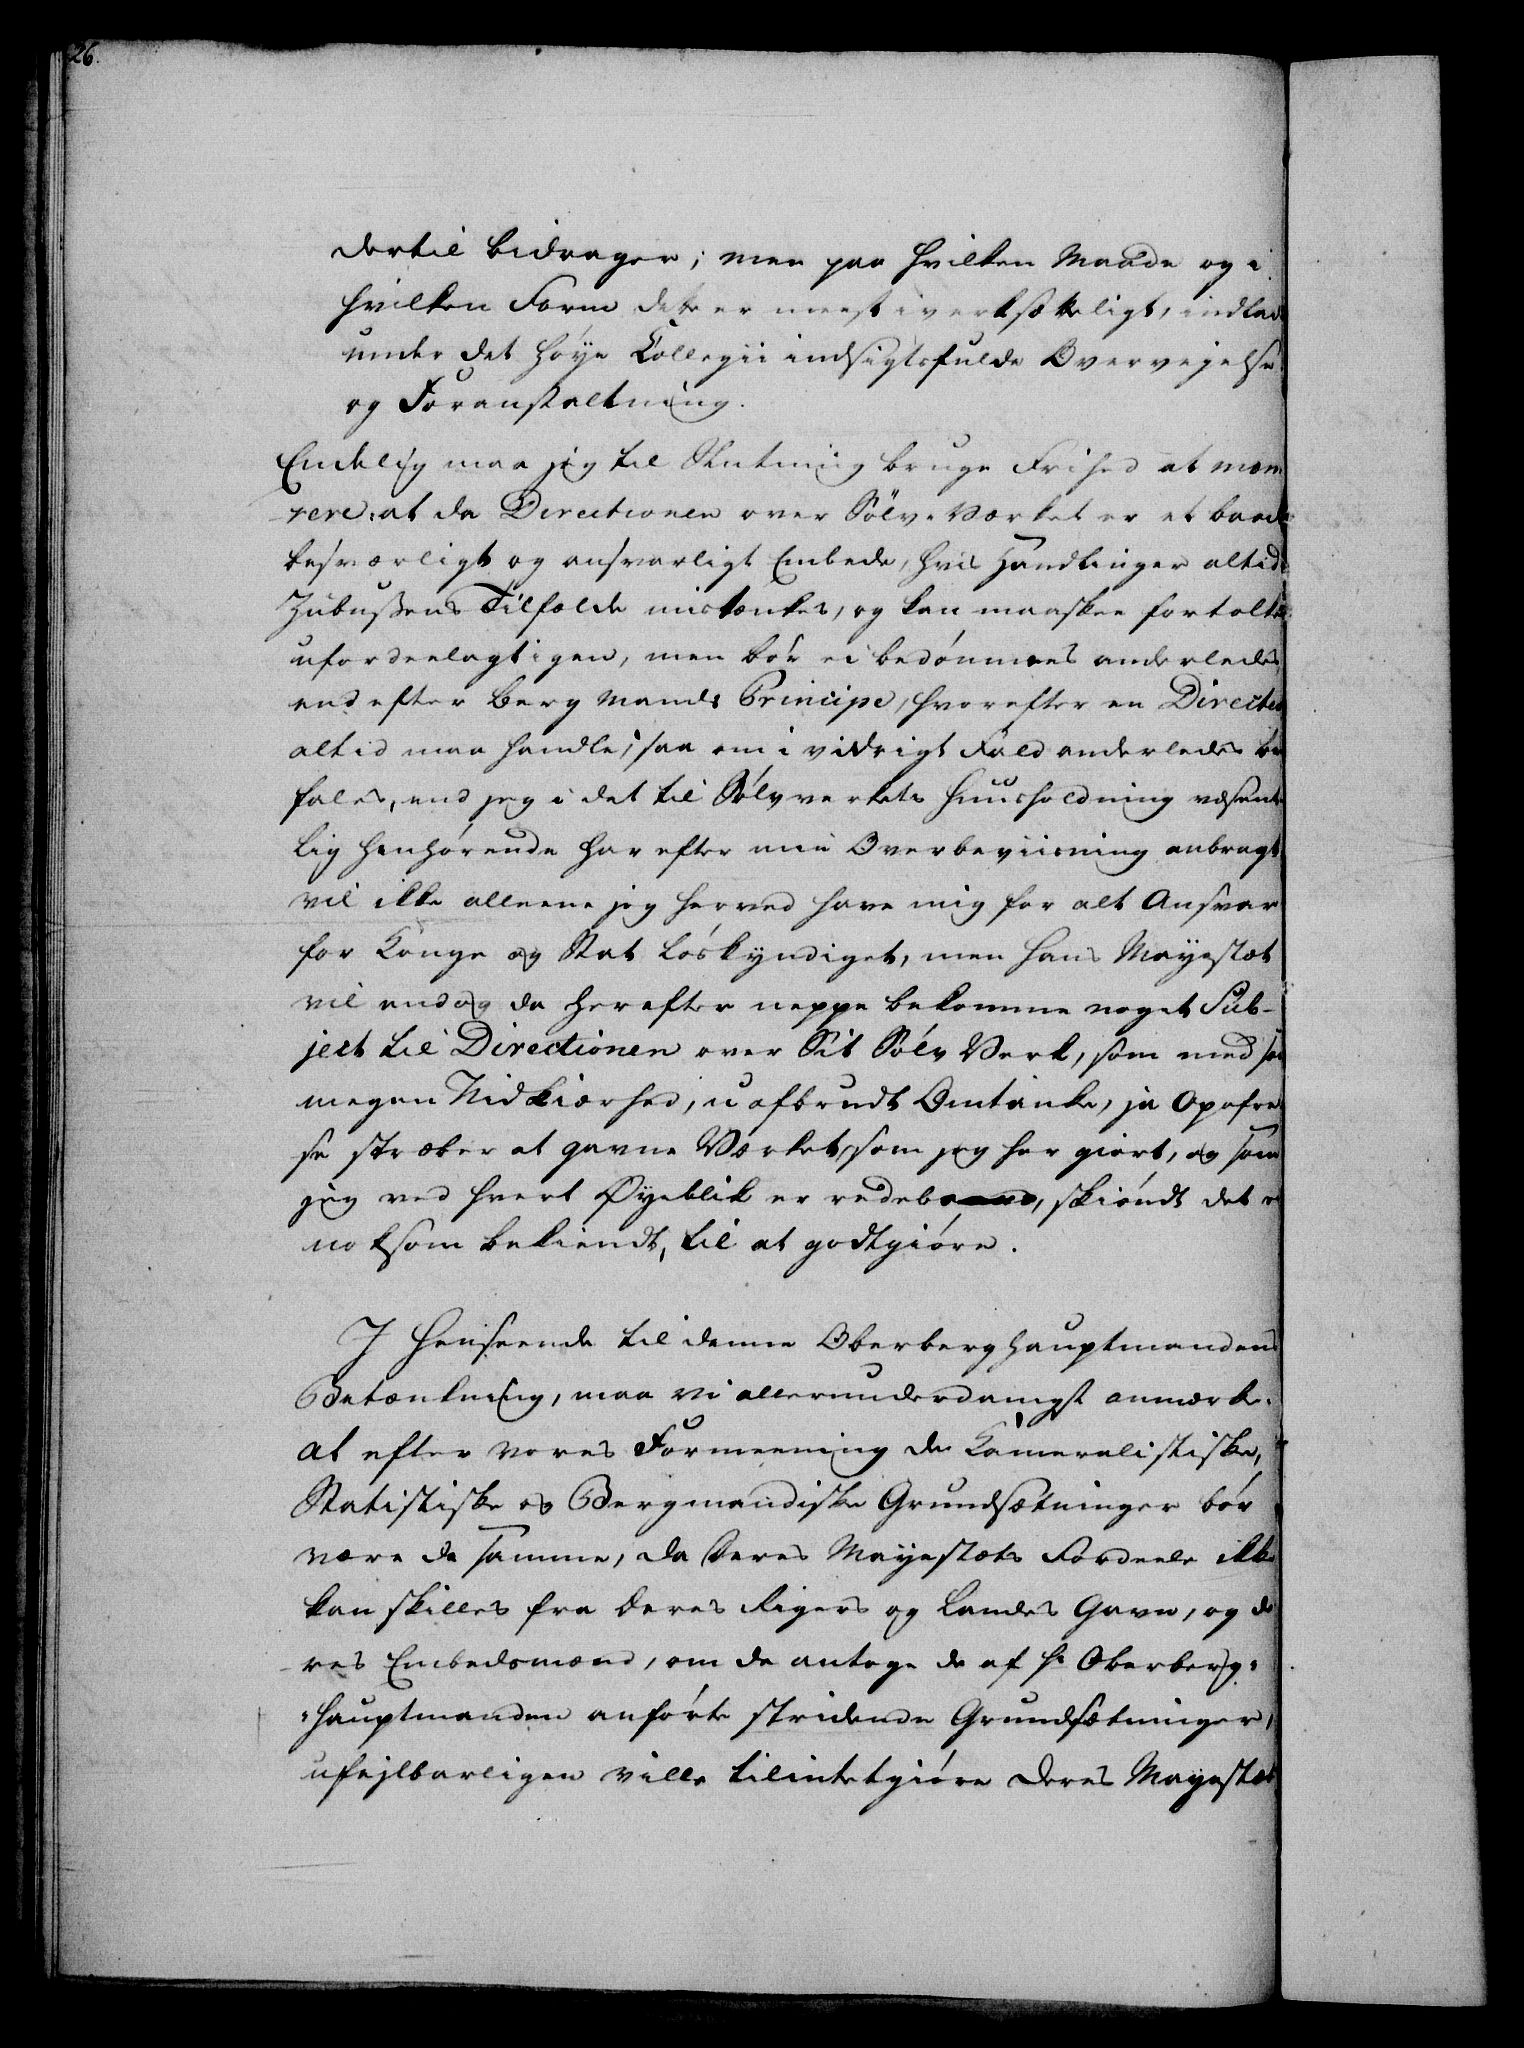 26.
dertil bidrager; men paa hvilken Maade og i
hvilken Form dette er meest iverksætteligt, indlad
under det høye Collegii indsigtsfulde Overvejelse
og Foranstaltning.
Endelig maa jeg til Slutning bruge Frihed at mom
rere: at da Directionen over Sölv-Værket er et baade
besværligt og ansvarligt Embede, hvis Handlinger altid i
Zubussens Tilfælde mistænkes, og kan maaskee fortolkes
ufordeelagtigen, men bör ei bedömmes anderledes,
end efter Berg Mands Principe, hvorefter en Directeur
altid maa handle; saa om i vidrigt Fald anderledes be
fales, end jeg i det til Sölvverkets Huusholdning væsent
lig henhörende har efter min Overbeviisning anbragt
vil ikke alleene jeg herved have mig for alt Ansvar
for Konge og Stat löskyndiget, men Hans Mayestæt
vil endog da herefter neppe bekomme noget Sub-
ject til Directionen over Sit Sölv Verk, som med saa
megen Nidkiærhed, uafbrudt Omtanke, ja Opofrel
se stræber at gavne Værket, som jeg har giort, og som
jeg ved hvert Øyeblik er redeboend, skiöndt det er
noksom bekiendt, til at godtgiöre.
I Henseende til denne Oberberghauptmandens
Betænkning, maa vi allerunderdanigst anmærke.
at efter vores Formeening de Kameralistiske,
Statistiske og Bergmandiske Grundsætninger bör
være de samme, da Deres Mayestæts Fordeele ikke
kan skilles fra Deres Rigers og Landes Gavn, og de
res Embedsmænd, om de antoge de af Hr Oberberg-
hauptmanden anförte stridende Grundsætninger,
ufejlbarligen ville tilintetgiöre Deres Mayestæts